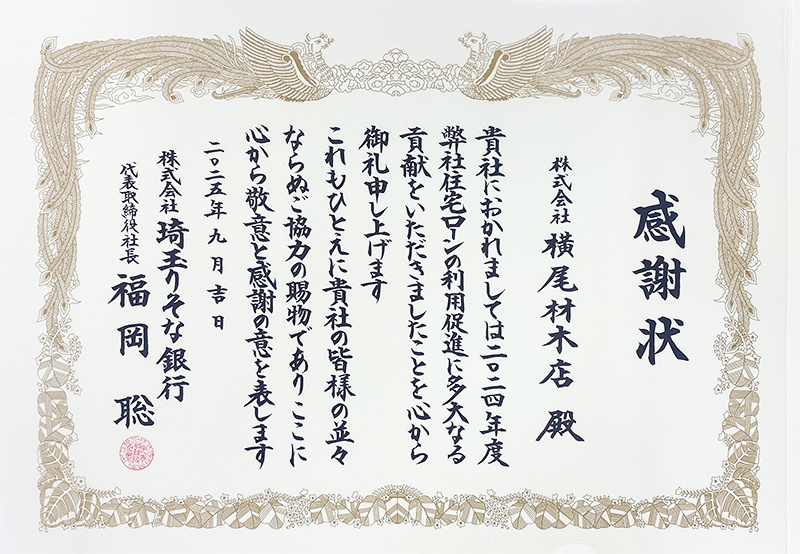 感謝状
株式会社 横尾材木店 殿
貴社におかれましては二〇二四年度
弊社住宅ローンの利用促進に多大なる
貢献をいただきましたことを心から
御礼申し上げます
これもひとえに貴社の皆様の並々
ならぬご協力の賜物でありここに
心から敬意と感謝の意を表します
二〇二五年九月吉日
株式会社 埼玉りそな銀行
代表取締役社長 福岡 聡